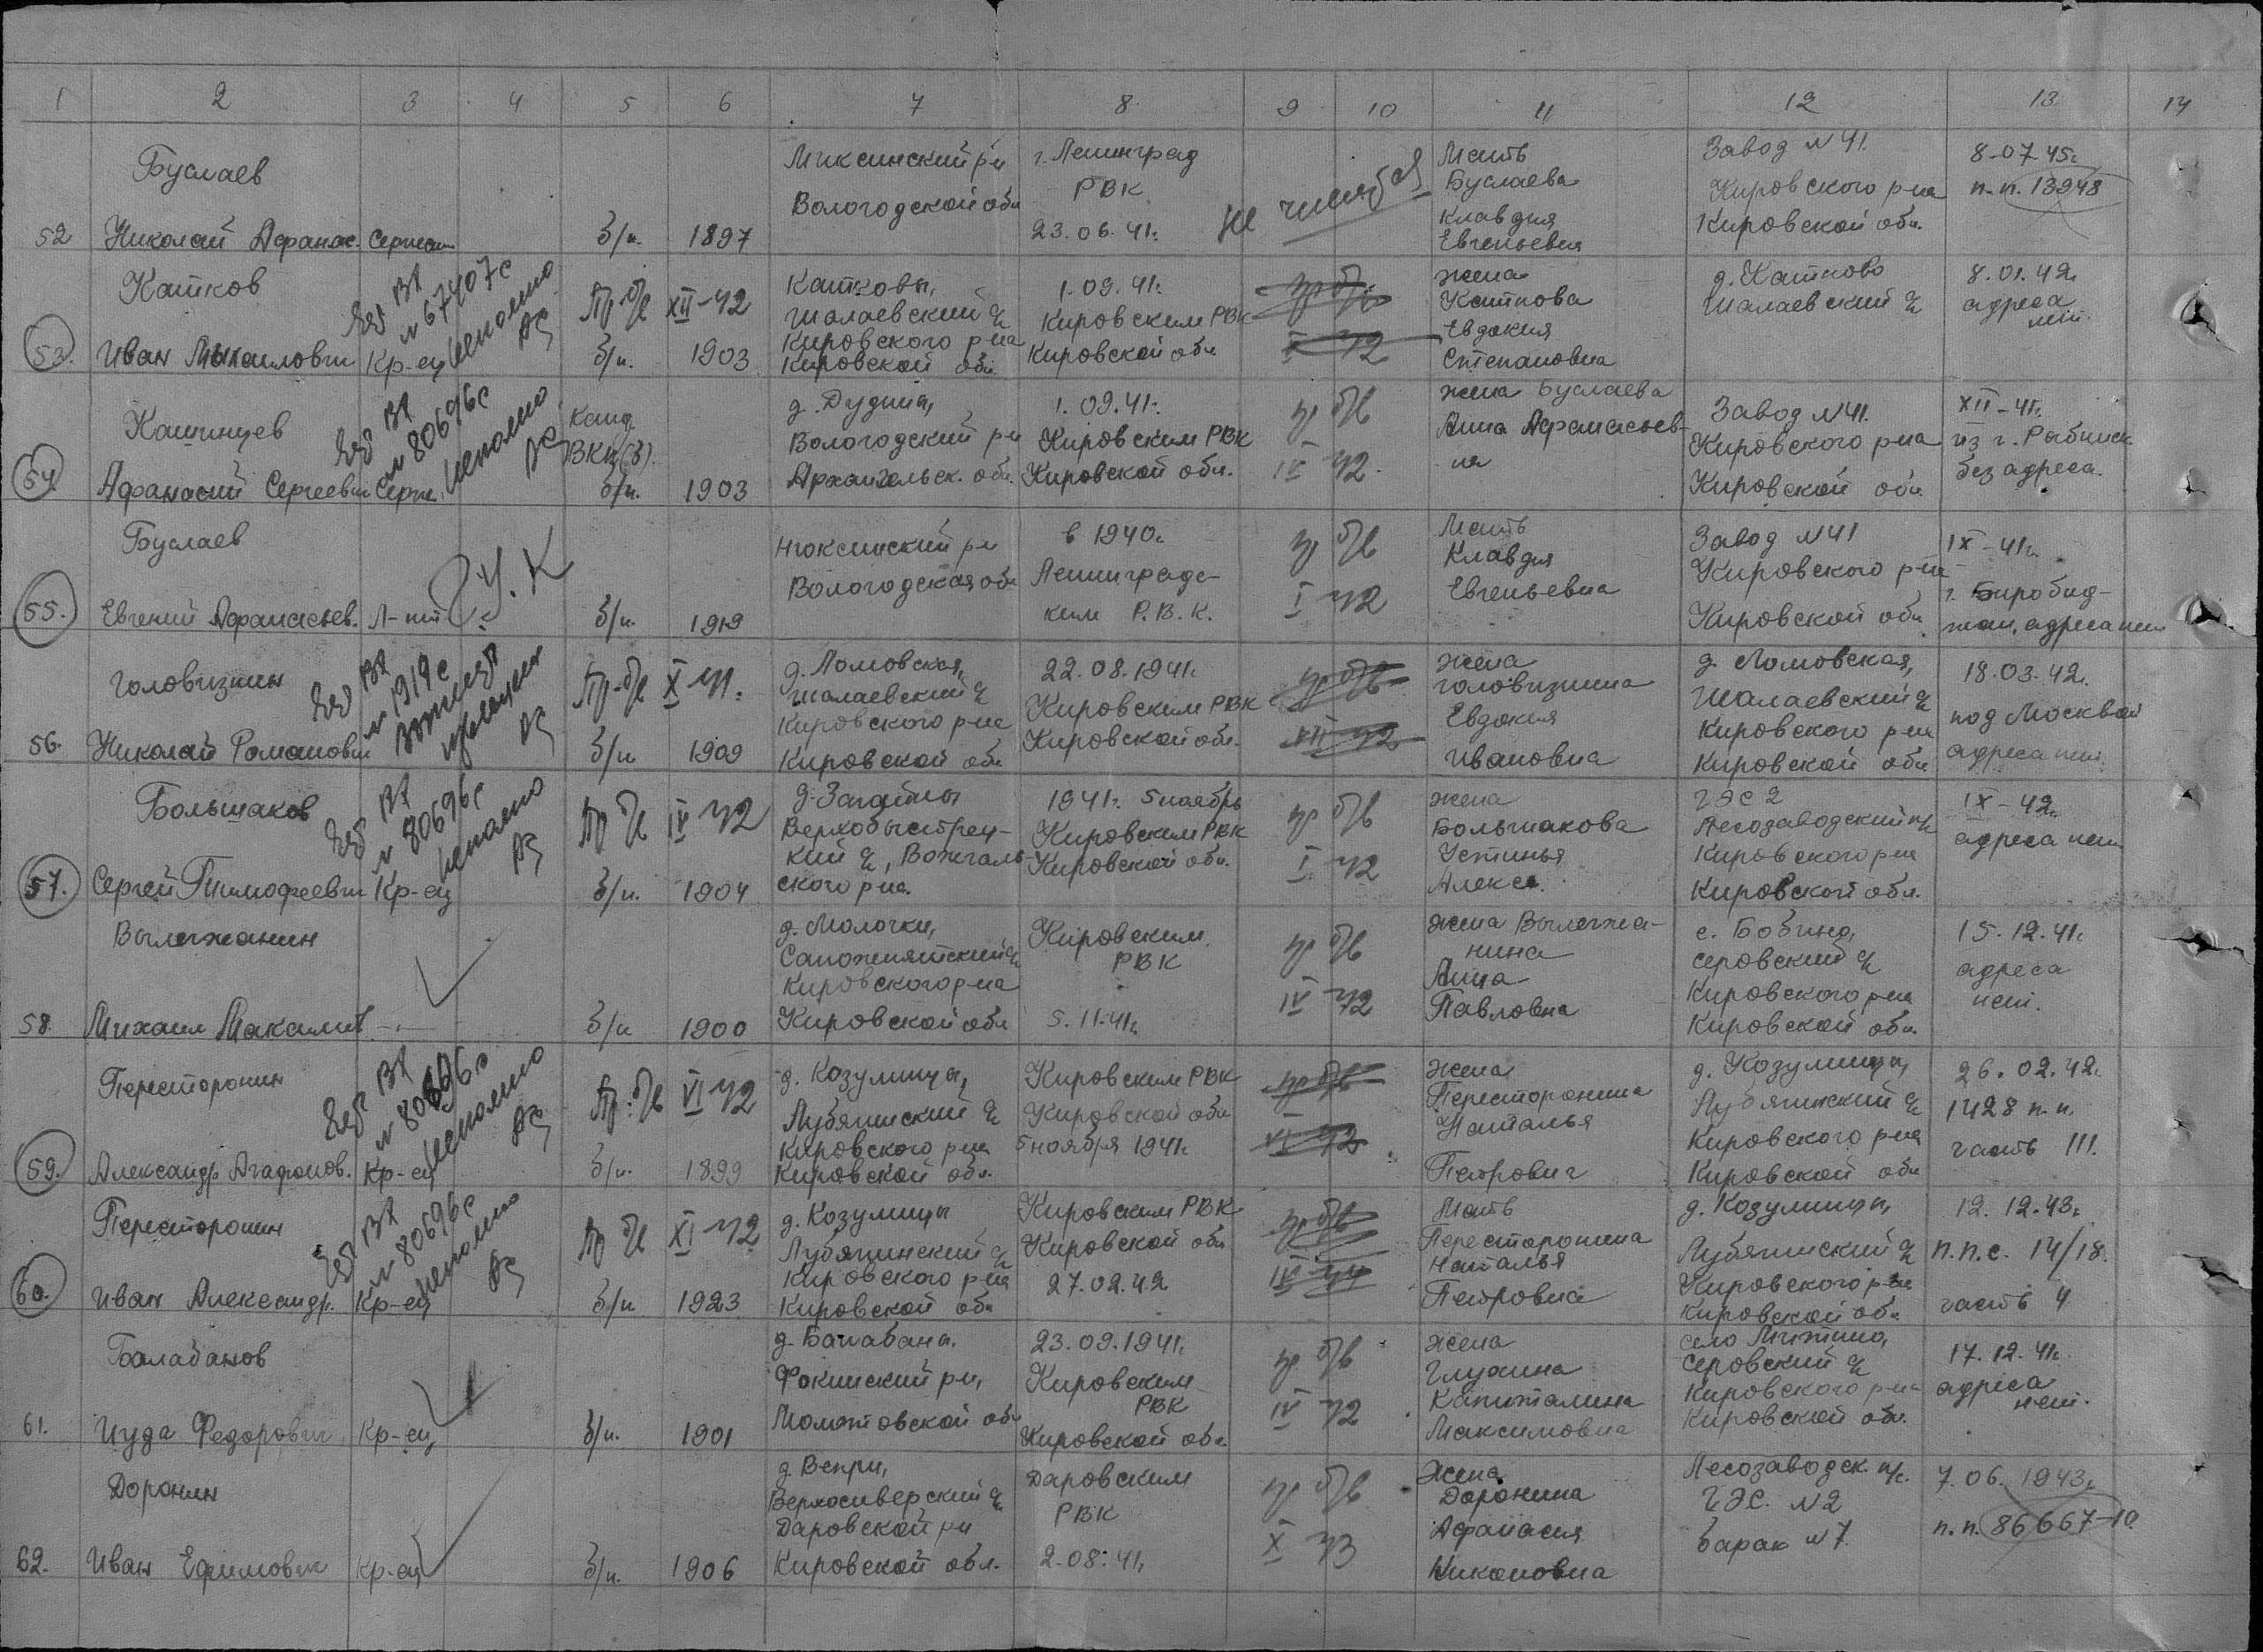 1 2 3 4 5 6 7 8 9 10 11 12 13 14
Буслаев
52 Николай Афанас. Сержан
б/п. 1897
Миксинский р-н
Вологодской обл
г. Ленинград
РВК
23.06.41г.
Мать
Буслаева
Клавдия
Евгеньевна
Завод N 41.
Кировского р-на
Кировской обл.
8-07 45г.
п.п. 13948
Катков
53. Иван Михаилович Кр-ец
ВК
N 67407с
исполнено
Пр.б/в XII-42
б/п. 1903
Катковы,
Шалаевский с/с
Кировского р-на
Кировской обл.
1.09.41г.
Кировским РВК
Кировской обл
пр б/в
42
жена
Каткова
Евдокия
Степановна
д. Катково
Шалаевский с/с
8.01.42г.
адреса
нет.
Кашинцев
54. Афанасий Сергеевич Серж.
ВК
N 80696с
исполнено
Канд
ВКП(б).
б/п. 1903
д. Дудкин,
Вологодский р-н
Архангельск. обл.
1.09.41г.
Кировским РВК
Кировской обл.
пр б/в
IV 42.
жена Буслаева
Анна Афанасьев-
на
Завод N 41.
Кировского р-на
Кировской обл.
XII-41г.
из г. Рыбинск
без адреса.
Буслаев
55. Евгений Афанасьев. Л-нт
У.К
б/п. 1919
Нюксинский р-н
Вологодская обл
в 1940г.
Ленинградс-
ким Р.В.К.
пр б/в
I 42
Мать
Клавдия
Евгеньевна
Завод N 41
Кировского р-на
Кировской обл
IX-41г.
г. Биробид-
жан, адреса нет
Головизнин
56. Николай Романович
ВК
N 1919с
Пр.б/в X 41.
б/п 1909
д. Ломовская,
Шалаевский с/с
Кировского р-на
Кировской обл
22.08.1941г.
Кировским РВК
Кировской обл.
пр б/в
XII 42
жена
Головизнина
Евдокия
Ивановна
д. Ломовская,
Шалаевский с/с
Кировского р-на
Кировской обл
18.03.42г.
под Москвой
адреса нет.
Большаков
57. Сергей Тимофеевич Кр-ец
ВК
N 80696с
исполнено
Пр б/в IV 42
б/п. 1904
д. Загайны
Верхобыстриц-
кий с/с, Вожгаль-
ского р-на.
1941г. 5 ноября
Кировским РВК
Кировской обл.
пр б/в
I 42
жена
Большакова
Устинья
Алекс.
ГЭС 2
Лесозаводский п/с
Кировского р-на
Кировской обл.
IX-42г.
адреса нет
Вылегжанин
58. Михаил Максимов.
б/п 1900
д. Молочки,
Сапожнятский с/с
Кировского р-на
Кировской обл
Кировским
РВК
5.11.41г.
пр б/в
IV 42
жена Вылегжа-
нина
Анна
Павловна
с. Бобино,
Серовский с/с
Кировского р-на
Кировской обл.
15.12.41г.
адреса
нет.
Пересторонин
59. Александр Агафонов. Кр-ец
ВК
N 80696с
исполнено
Пр.б/в VI 42
б/п. 1899
д. Козулинцы,
Лубягинский с/с
Кировского р-на
Кировской обл.
Кировским РВК
Кировской обл
5 ноября 1941г.
пр б/в
VI 42
жена
Пересторонина
Наталья
Петрович
д. Козулинцы,
Лубягинский с/с
Кировского р-на
Кировской обл
26.02.42г.
1428 п.п.
часть 111.
Пересторонин
60. Иван Александр. Кр-ец
ВК
N 80696с
исполнено
Пр б/в XI 42
б/п 1923
д. Козулинцы
Лубягинский с/с
Кировского р-на
Кировской обл
Кировским РВК
Кировской обл
27.02.42
пр б/в
44
Мать
Пересторонина
Наталья
Петровна
д. Козулинцы,
Лубягинский с/с
Кировского р-на
Кировской обл.
12.12.43г.
п.п.с. 14/18.
часть 4
Балабанов
61. Иуда Федорович Кр-ец
б/п. 1901
д. Балабаны.
Фокинский р-н,
Молотовской обл
23.09.1941г.
Кировским
РВК
Кировской обл.
пр б/в
IV 42
жена
Глухина
Капиталина
Максимовна
село Митино,
Серовский с/с
Кировского р-на
Кировской обл.
17.12.41г.
адреса
нет.
Доронин
62. Иван Ефимович Кр-ец
б/п. 1906
д. Вепри,
Верхосиверский с/с
Даровской р-н
Кировской обл.
Даровским
РВК
2-08.41г.
пр б/в
X 43
Жена
Доронина
Афанасия
Никоновна
Лесозаводск. п/с.
ГЭС. N 2
барак N 7.
7.06.1943г.
п.п. 86667-10